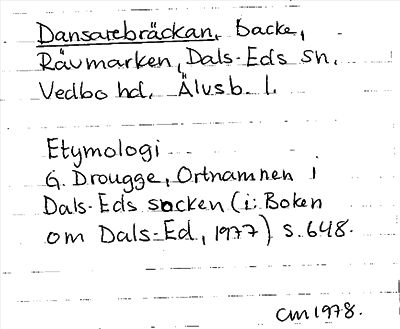 Dansarebräckan, backe,
Rävmarken, Dals-Eds sn.
Vedbo hd. Älvsb. l.
Etymologi
G. Drougge, Ortnamnen i
Dals-Eds socken (i: Boken
om Dals-Ed, 1977) s. 648.
CM 1978.